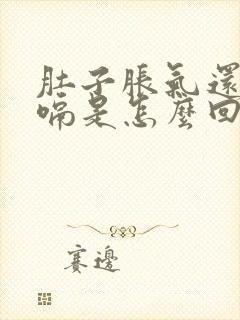 肚子脹氣還
嗝是怎麼回
賽邊